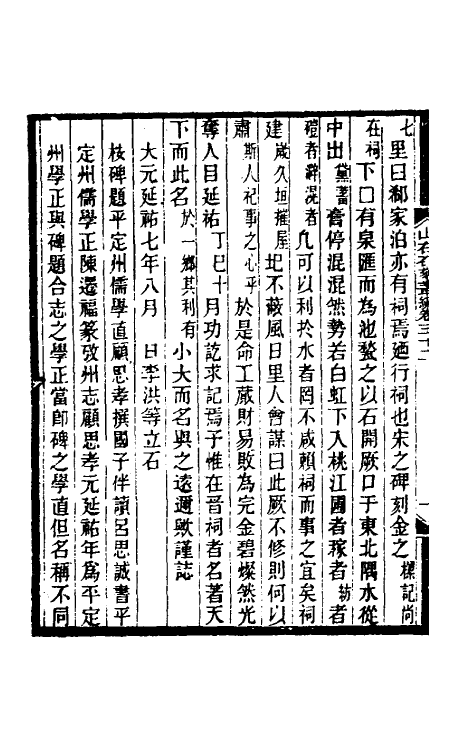 七里曰郗家泊亦有祠焉廼行祠也朱之碑刻金之標記尚
在祠下□有泉匯而為池甃之以石開厥口于東北隅水從
中出黛蓄膏停混混然勢若白虹下入桃江圃者稼者紡者
磑者澼浣者凡可以利於水者罔不咸賴祠而事之宜矣祠
建歲久垣摧屋圯不蔽風日里人會謀曰此厥不修則何以
肅斯人祀事之心乎於是命工蕆財易敗為完金碧燦然光
奪人目延祐丁巳十月功訖求記焉予惟在晉祠者名著天
下而此名於一鄉其利有小大而名與之遠邇歟謹誌
大元延祐七年八月　日李洪等立石
桉碑題平定州儒學直顧思孝撰國子伴讀呂思誠書平
定州儒學正陳遷福篆攷州志顧思孝元延祐年為平定
州學正與碑題合志之學正當即碑之學直但名稱不同
山右石刻叢編卷三十二